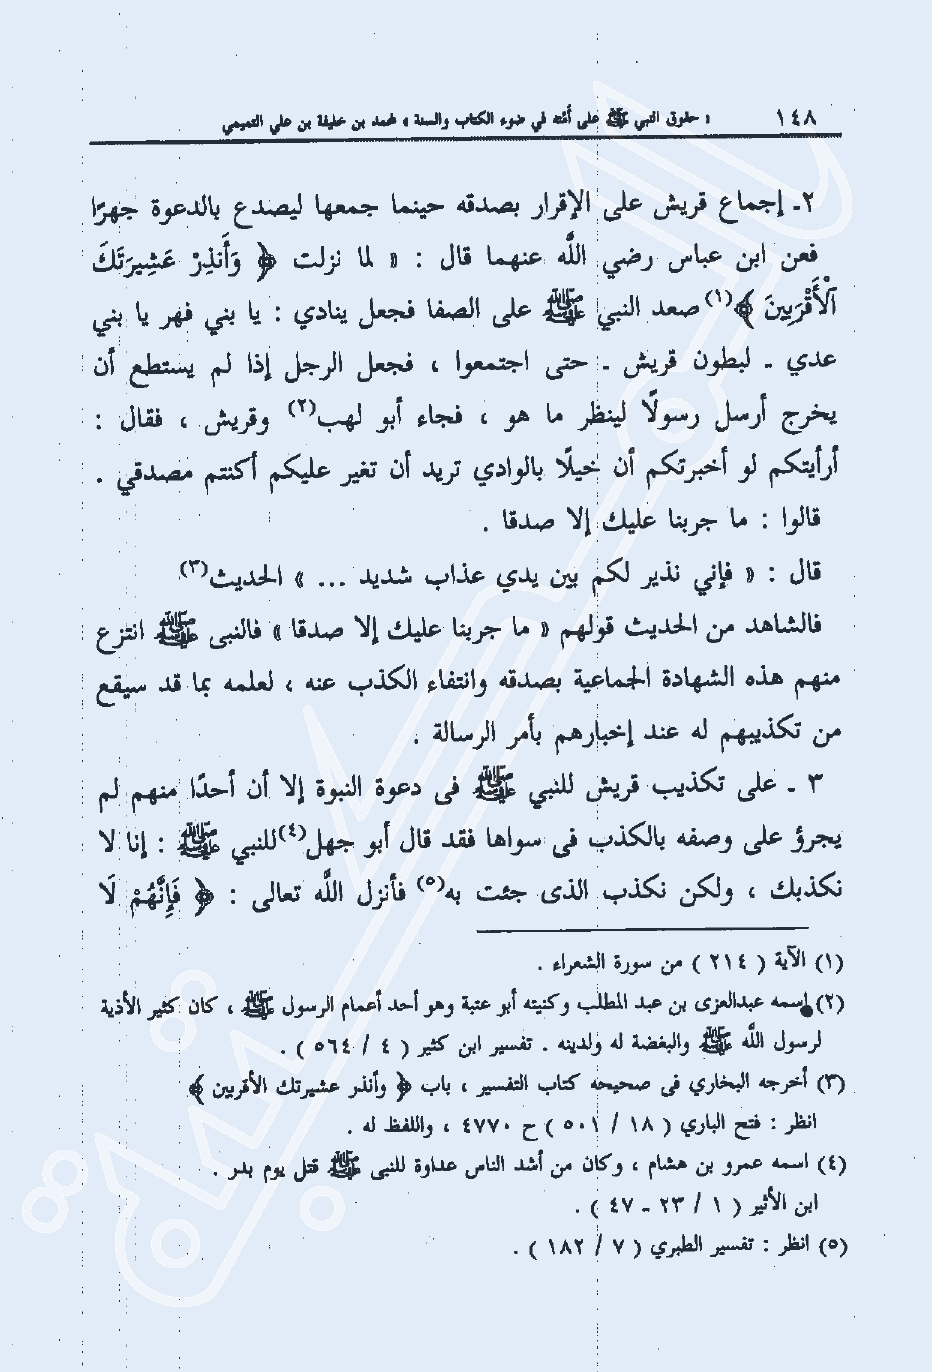 ١٤٨ « حقوق النبي ﷺ على أمته في ضوء الكتاب والسنة » لمحمد بن خليفة بن علي التميمي
٢ـ إجماع قريش على الإقرار بصدقه حينما جمعها ليصدع بالدعوة جهرًا
فعن ابن عباس رضي الله عنهما قال : « لما نزلت ﴿ وَأَنذِرْ عَشِيرَتَكَ
ٱلْأَقْرَبِينَ ﴾(١) صعد النبي ﷺ على الصفا فجعل ينادي : يا بني فهر يا بني
عدي ـ لبطون قريش ـ حتى اجتمعوا ، فجعل الرجل إذا لم يستطع أن
يخرج أرسل رسولًا لينظر ما هو ، فجاء أبو لهب(٢) وقريش ، فقال :
أرأيتكم لو أخبرتكم أن خيلًا بالوادي تريد أن تغير عليكم أكنتم مصدقي .
قالوا : ما جربنا عليك إلا صدقا .
قال : « فإني نذير لكم بين يدي عذاب شديد ... » الحديث(٣)
فالشاهد من الحديث قولهم « ما جربنا عليك إلا صدقا » فالنبى ﷺ انتزع
منهم هذه الشهادة الجماعية بصدقه وانتفاء الكذب عنه ، لعلمه بما قد سيقع
من تكذيبهم له عند إخبارهم بأمر الرسالة .
٣ ـ على تكذيب قريش للنبي ﷺ فى دعوة النبوة إلا أن أحدًا منهم لم
يجرؤ على وصفه بالكذب فى سواها فقد قال أبو جهل(٤) للنبي ﷺ : إنا لا
نكذبك ، ولكن نكذب الذى جئت به(٥) فأنزل الله تعالى : ﴿ فَإِنَّهُمْ لَا
(١) الآية ( ٢١٤ ) من سورة الشعراء .
(٢) اسمه عبدالعزى بن عبد المطلب وكنيته أبو عتبة وهو أحد أعمام الرسول ﷺ ، كان كثير الأذية
لرسول الله ﷺ والبغضة له ولدينه . تفسير ابن كثير ( ٤ / ٥٦٤ ) .
(٣) أخرجه البخاري فى صحيحه كتاب التفسير ، باب ﴿ وأنذر عشيرتك الأقربين ﴾
انظر : فتح الباري ( ١٨ / ٥٠١ ) ح ٤٧٧٠ ، واللفظ له .
(٤) اسمه عمرو بن هشام ، وكان من أشد الناس عداوة للنبى ﷺ قتل يوم بدر .
ابن الأثير ( ١ / ٢٣ ـ ٤٧ ) .
(٥) انظر : تفسير الطبري ( ٧ / ١٨٢ ) .